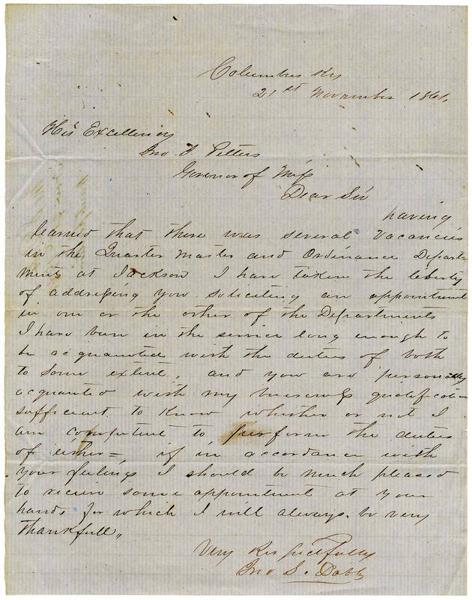 Columbus Ky
21st November 1861.
His Excellency
Jno. J Pettus
Govenor of Miss
Dear Sir
having
learned that there was several Vacancies
in the Quarter Master and Ordinance Depart-
ments at Jackson I have taken the liberty
of addressing you soliciting an appointment
in one or the other of the Departments
I have been in the service long enough to
be acquanted with the duties of both
to some extent, and you are personally
acquanted with my business qualifications
sufficient to know whether or not I
am competent to perform the duties
of either= if in accordance with
your feelings I should be much pleased
to receive some appointment at your
hands for which I will always be very
thankfull,
Very Respectfully
Jno S. Dabb